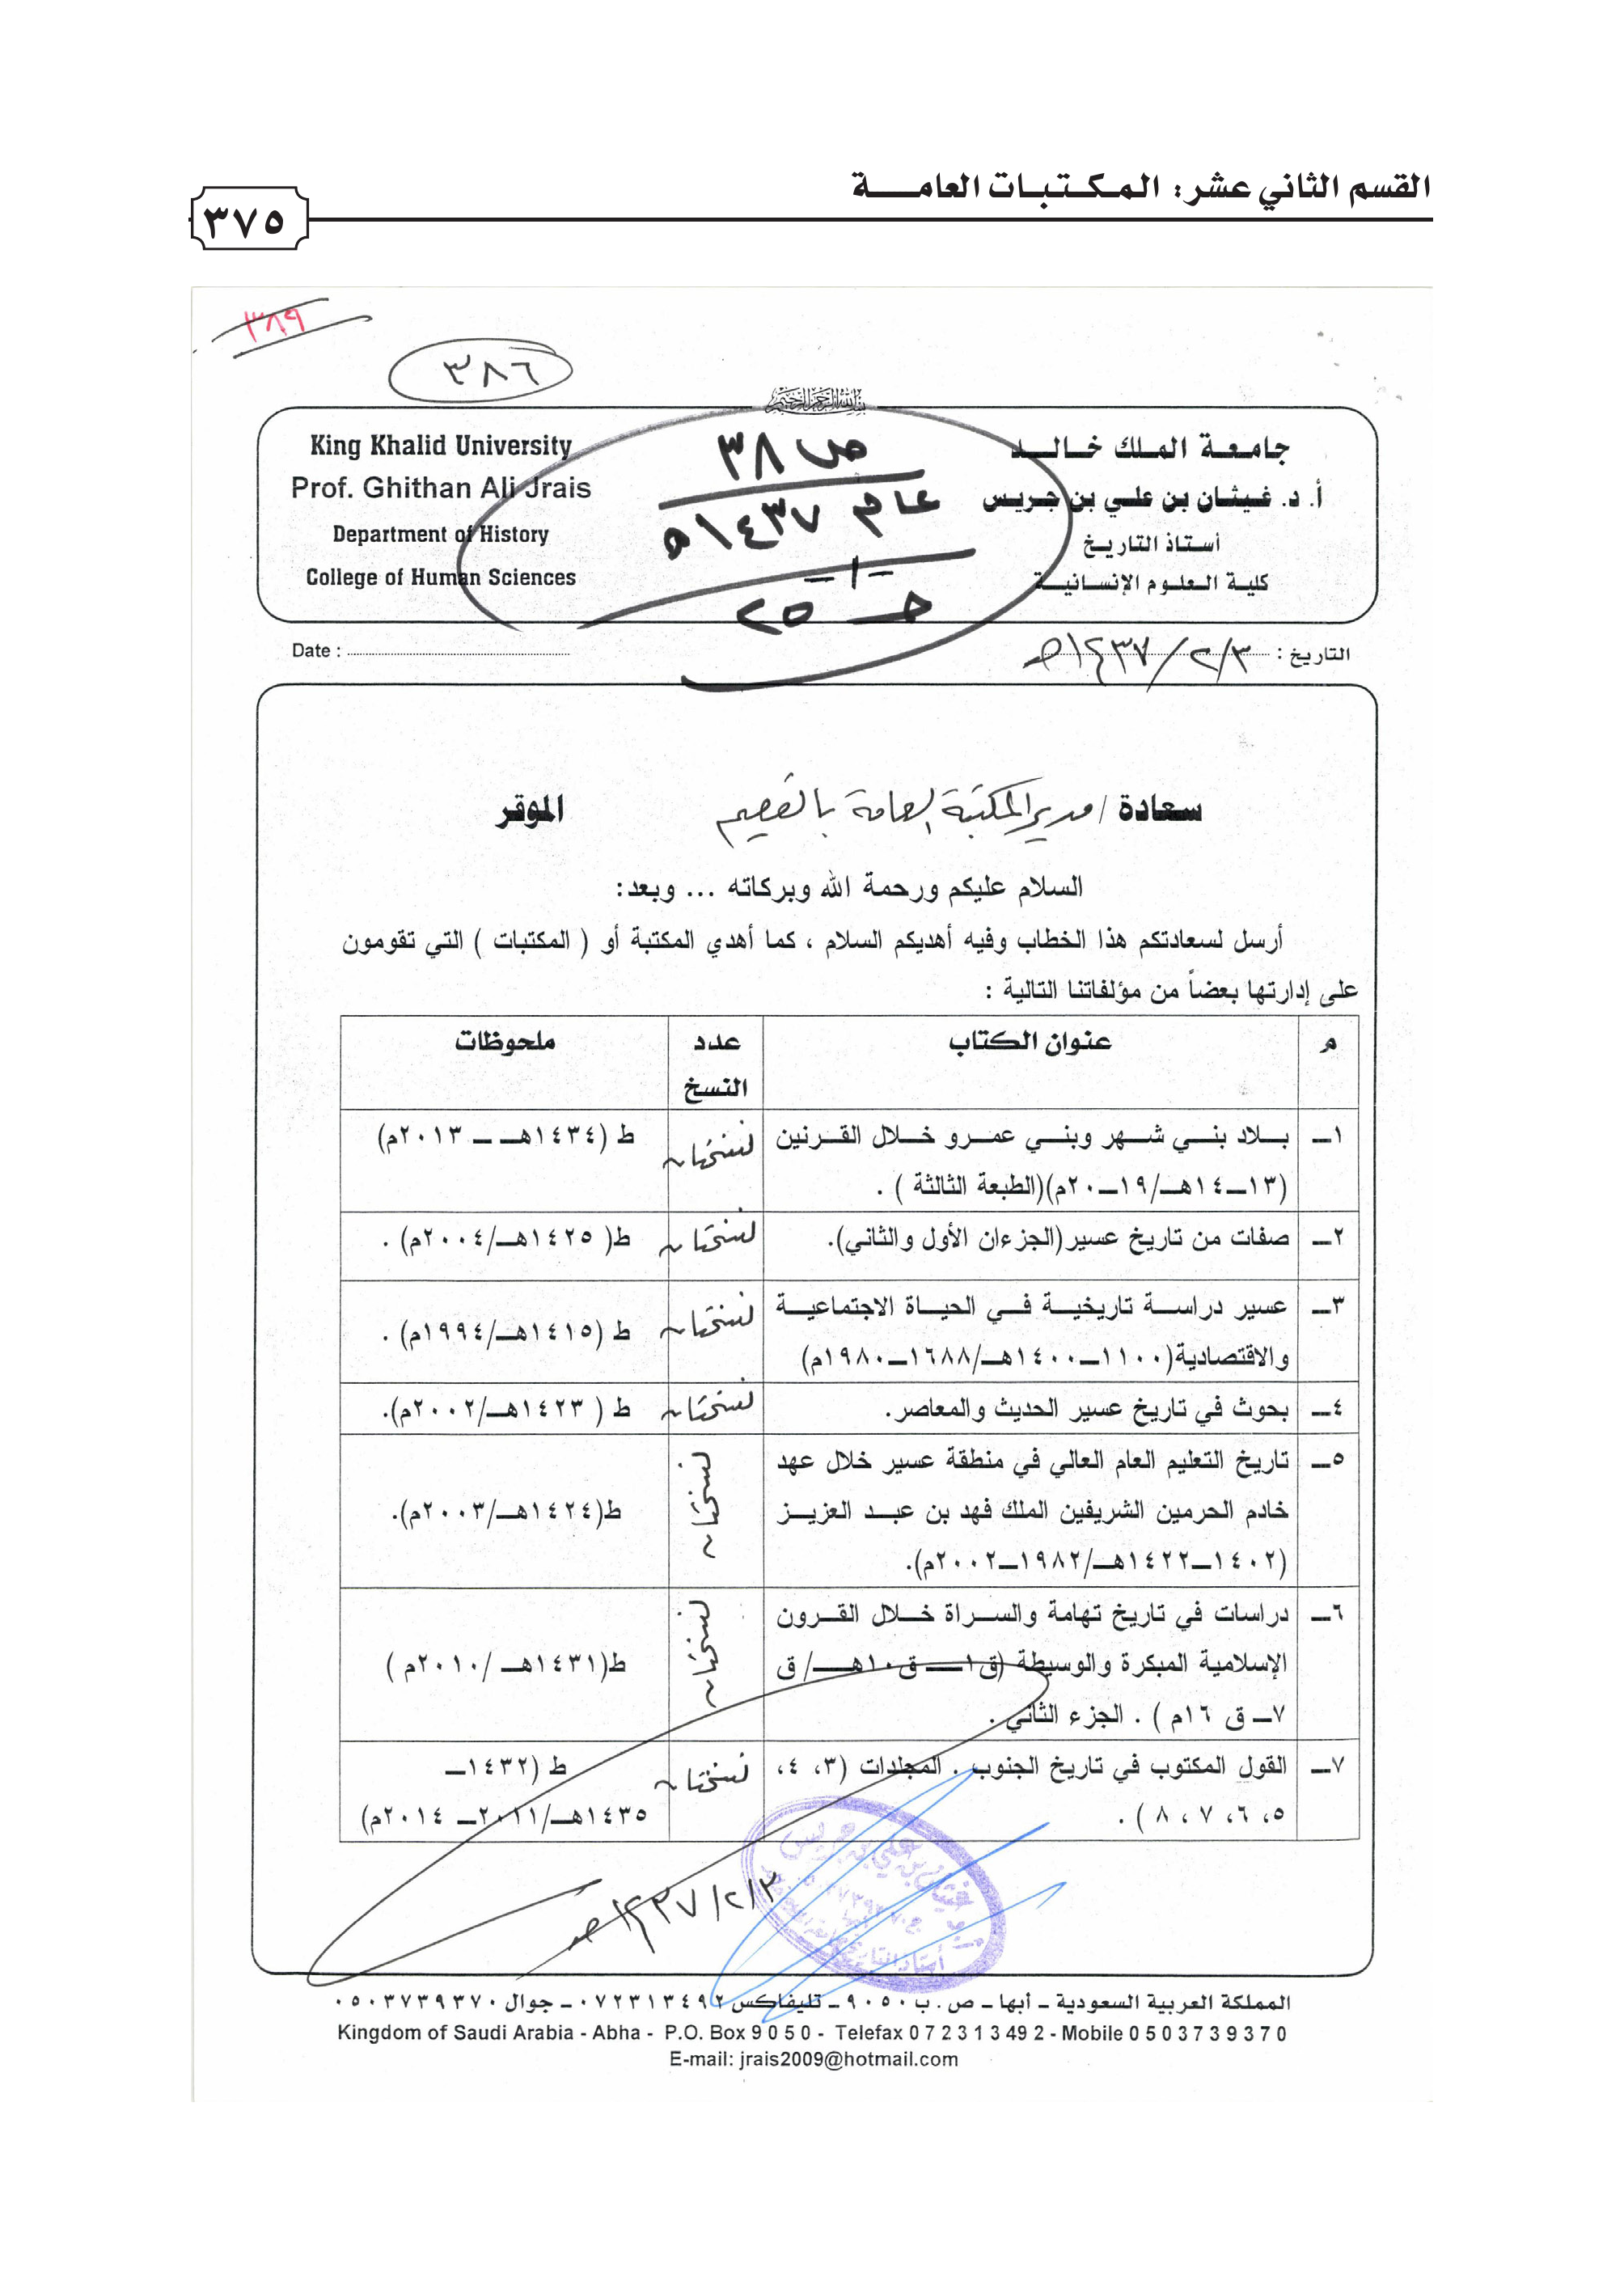 القسم الثاني عشر: المكتبات العامة
٣٧٥
٣٨٩
٣٨٦
بسم الله الرحمن الرحيم
جامعة الملك خالد
أ. د. غيثان بن علي بن جريس
أستاذ التاريخ
كلية العلوم الإنسانية
King Khalid University
Prof. Ghithan Ali Jrais
Department of History
College of Human Sciences
ص ٣٨
عام ١٤٣٧هـ
حـ ٢٥
التاريخ : ١٤٣٧/٢/٣هـ
Date :
سعادة / مدير المكتبة العامة بالقصيم الموقر
السلام عليكم ورحمة الله وبركاته ... وبعد:
أرسل لسعادتكم هذا الخطاب وفيه أهديكم السلام ، كما أهدي المكتبة أو ( المكتبات ) التي تقومون
على إدارتها بعضاً من مؤلفاتنا التالية :
م عنوان الكتاب عدد النسخ ملحوظات
١ـ بلاد بني شهر وبني عمرو خلال القرنين نسختان ط (١٤٣٤هـ ـ ٢٠١٣م)
(١٣ـ١٤هـ/١٩ـ٢٠م)(الطبعة الثالثة ) .
٢ـ صفات من تاريخ عسير(الجزءان الأول والثاني). نسختان ط( ١٤٢٥هـ/٢٠٠٤م) .
٣ـ عسير دراسة تاريخية في الحياة الاجتماعية نسختان ط (١٤١٥هـ/١٩٩٤م) .
والاقتصادية(١١٠٠ـ١٤٠٠هـ/١٦٨٨ـ١٩٨٠م)
٤ـ بحوث في تاريخ عسير الحديث والمعاصر. نسختان ط ( ١٤٢٣هـ/٢٠٠٢م).
٥ـ تاريخ التعليم العام العالي في منطقة عسير خلال عهد
خادم الحرمين الشريفين الملك فهد بن عبد العزيز نسختان ط(١٤٢٤هـ/٢٠٠٣م).
(١٤٠٢ـ١٤٢٢هـ/١٩٨٢ـ٢٠٠٢م).
٦ـ دراسات في تاريخ تهامة والسراة خلال القرون
الإسلامية المبكرة والوسيطة (ق١ــ ق١٠هــ/ ق نسختان ط(١٤٣١هـ /٢٠١٠م )
٧ـ ق ١٦م ) . الجزء الثاني .
٧ـ القول المكتوب في تاريخ الجنوب . المجلدات (٣، ٤، نسختان ط (١٤٣٢ـ
٥، ٦، ٧ ، ٨ ) . ١٤٣٥هـ/٢٠١١ـ ٢٠١٤م)
١٤٣٧/٢/٣هـ
المملكة العربية السعودية ـ أبها ـ ص . ب ٩٠٥٠ ـ تليفاكس ٠٧٢٣١٣٤٩٢ ـ جوال ٠٥٠٣٧٣٩٣٧٠
Kingdom of Saudi Arabia - Abha - P.O. Box 9 0 5 0 - Telefax 0 7 2 3 1 3 49 2 - Mobile 0 5 0 3 7 3 9 3 7 0
E-mail: jrais2009@hotmail.com